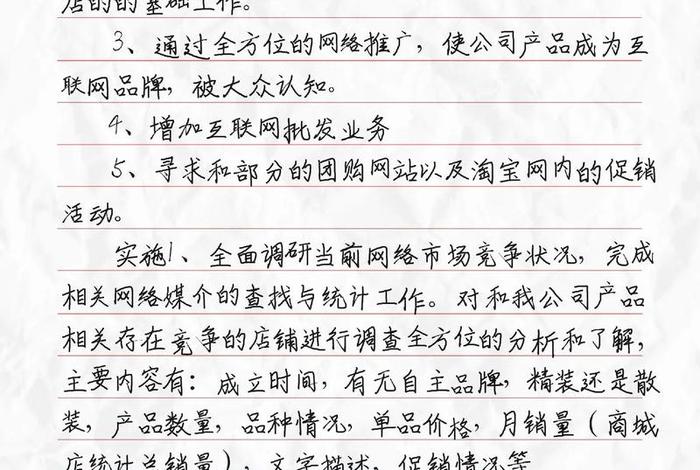 店的的基础工作。
3、通过全方位的网络推广，使公司产品成为互
联网品牌，被大众认知。
4、增加互联网批发业务
5、寻求和部分的团购网站以及淘宝网内的促销
活动。
实施1、全面调研当前网络市场竞争状况，完成
相关网络媒介的查找与统计工作。对和我公司产品
相关存在竞争的店铺进行调查全方位的分析和了解，
主要内容有：成立时间，有无自主品牌，精装还是散
装，产品数量，品种情况，单品价格，月销量（商城
店统计总销量），文字描述，促销情况等